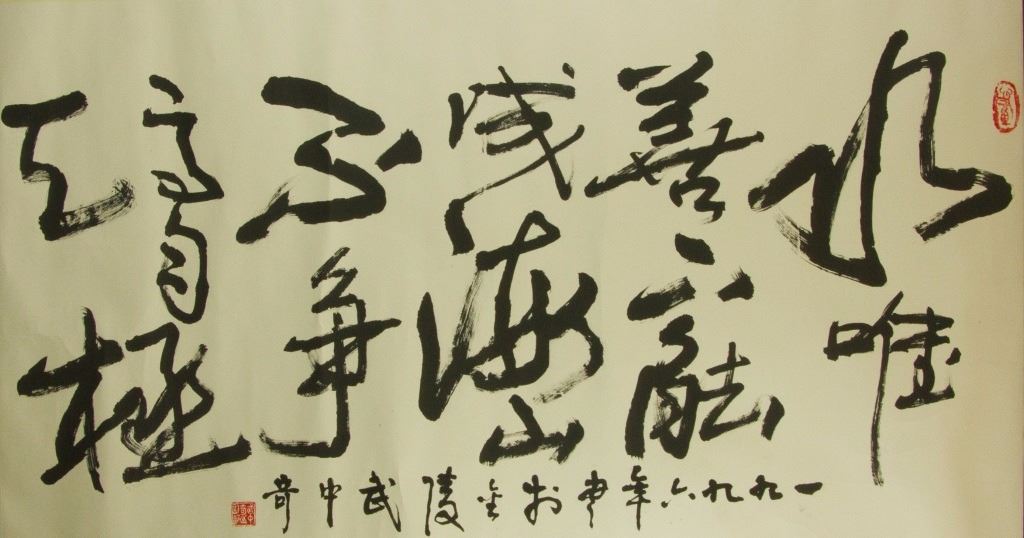 水唯
善下能
成海山
不争
高自極
天
一九九六年書於金陵武中奇